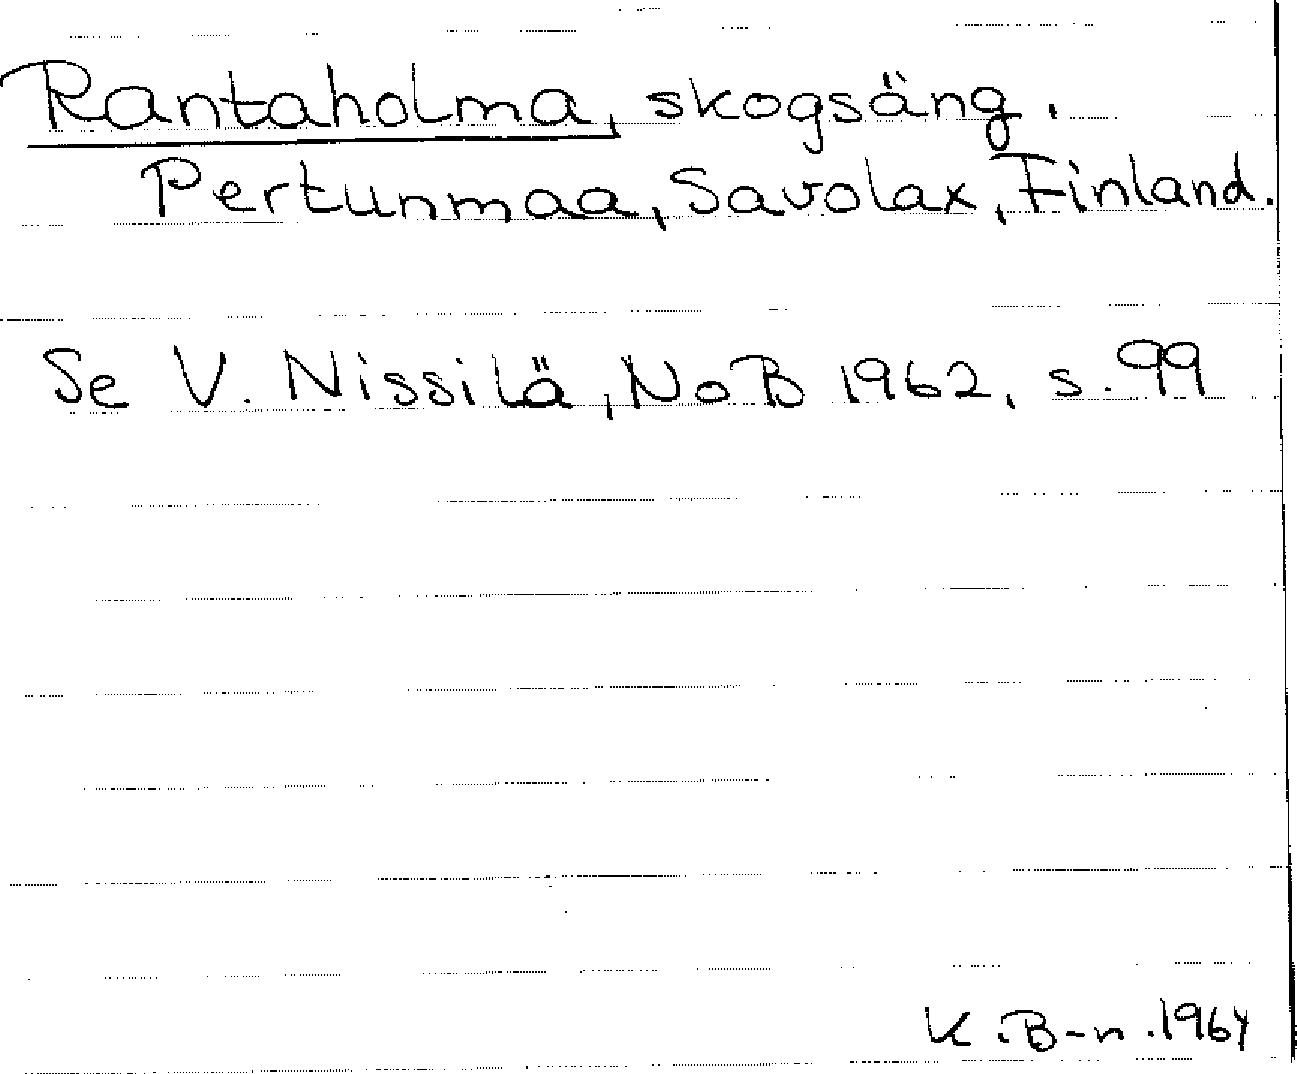 Rantaholma, skogsäng.
Pertunmaa, Savolax, Finland.
Se V. Nissilä, NoB 1962, s. 99
K. B-n. 1964